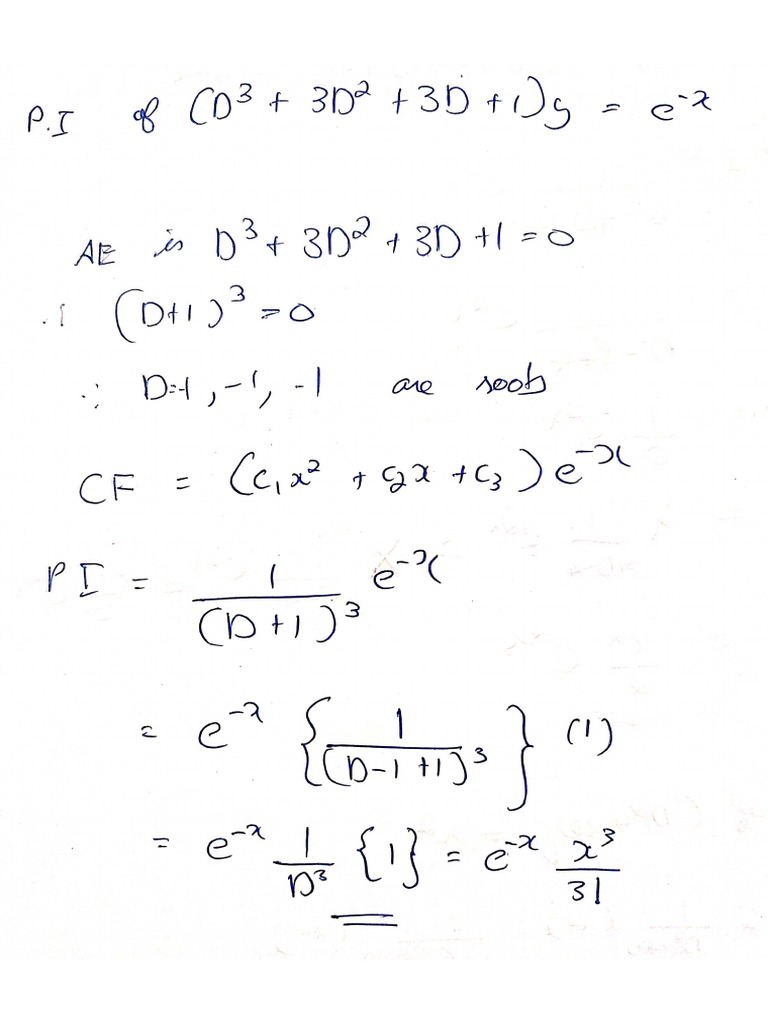 P.I of (D³ + 3D² + 3D + 1)y = e⁻ˣ
AE is D³ + 3D² + 3D + 1 = 0
∴ (D+1)³ = 0
∴ D=-1, -1, -1 are roots
CF = (c₁x² + c₂x + c₃)e⁻ˣ
PI = 1/(D+1)³ e⁻ˣ
= e⁻ˣ {1/(D-1+1)³} (1)
= e⁻ˣ 1/D³ {1} = e⁻ˣ x³/3!